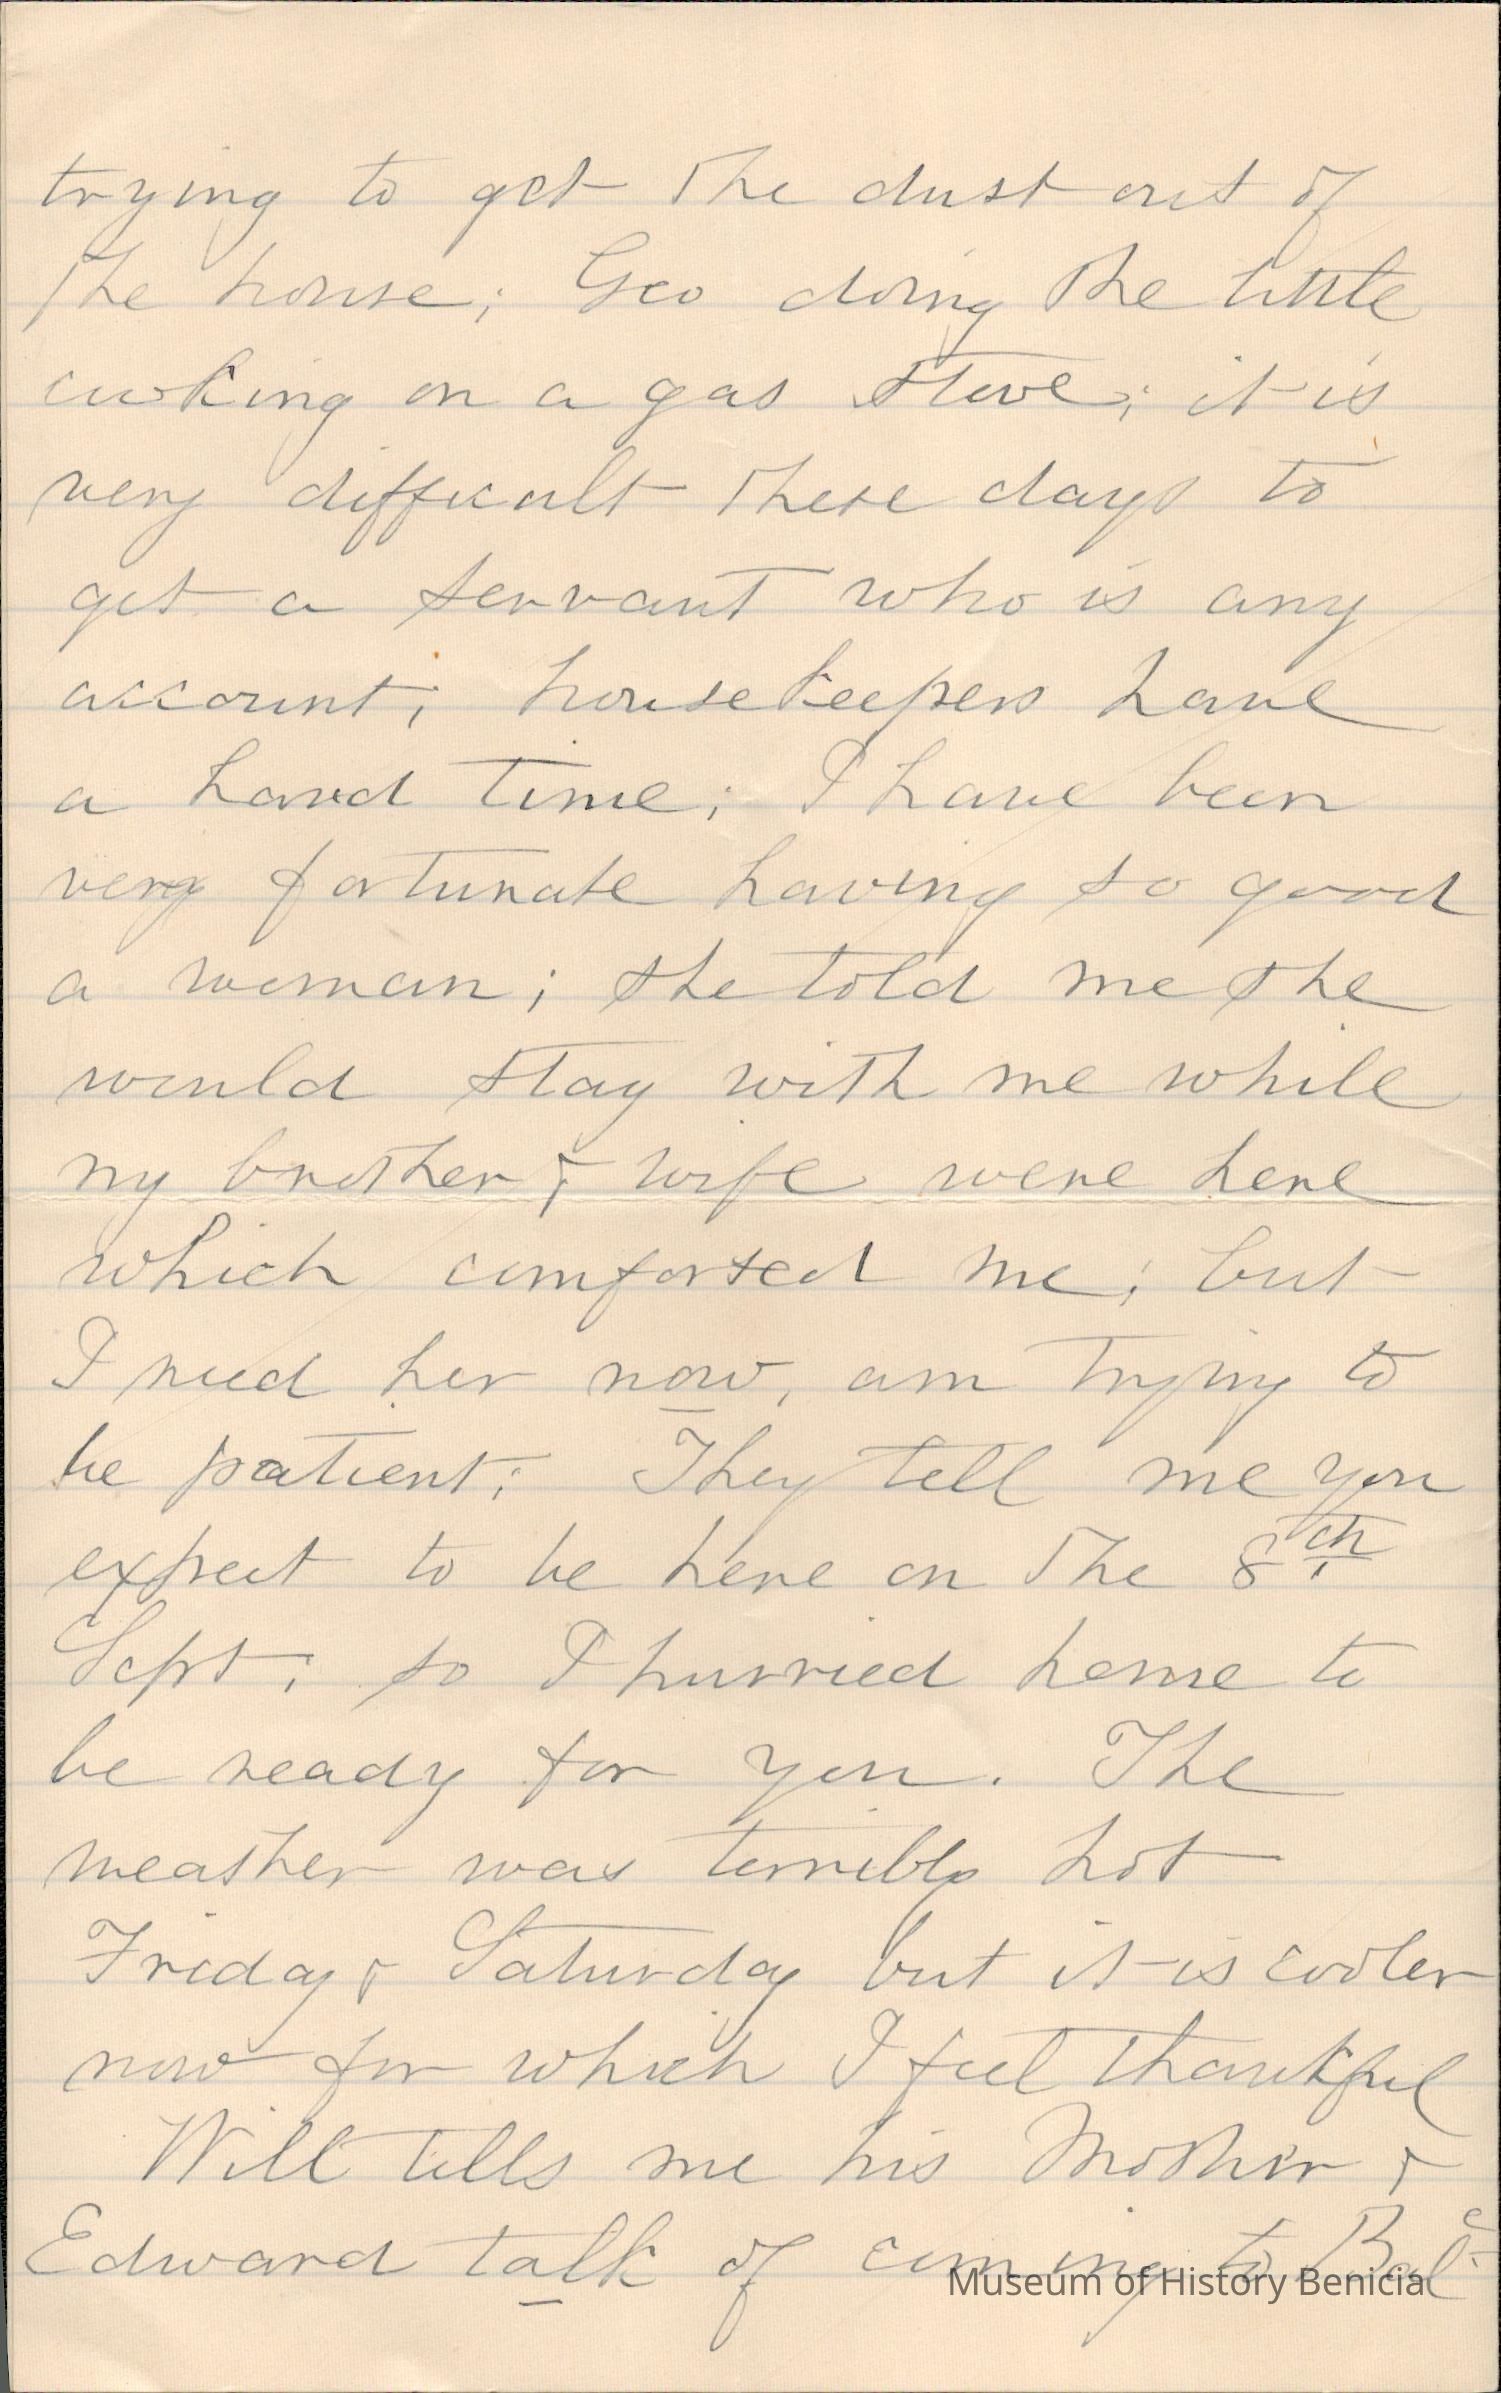 trying to get the dust out of
the house; Geo doing the little
cooking on a gas stove; it is
very difficult these days to
get a servant who is any
account; housekeepers have
a hard time; I have been
very fortunate having so good
a woman; she told me she
would stay with me while
my brother & wife were here
which comforted me; but
I need her now, am trying to
be patient; They tell me you
expect to be here on the 8th
Sept; so I hurried home to
be ready for you. The
weather was terribly hot
Friday & Saturday but it is cooler
now for which I feel thankful
Will tells me his Mother &
Edward talk of coming to Balt
Museum of History Benicia